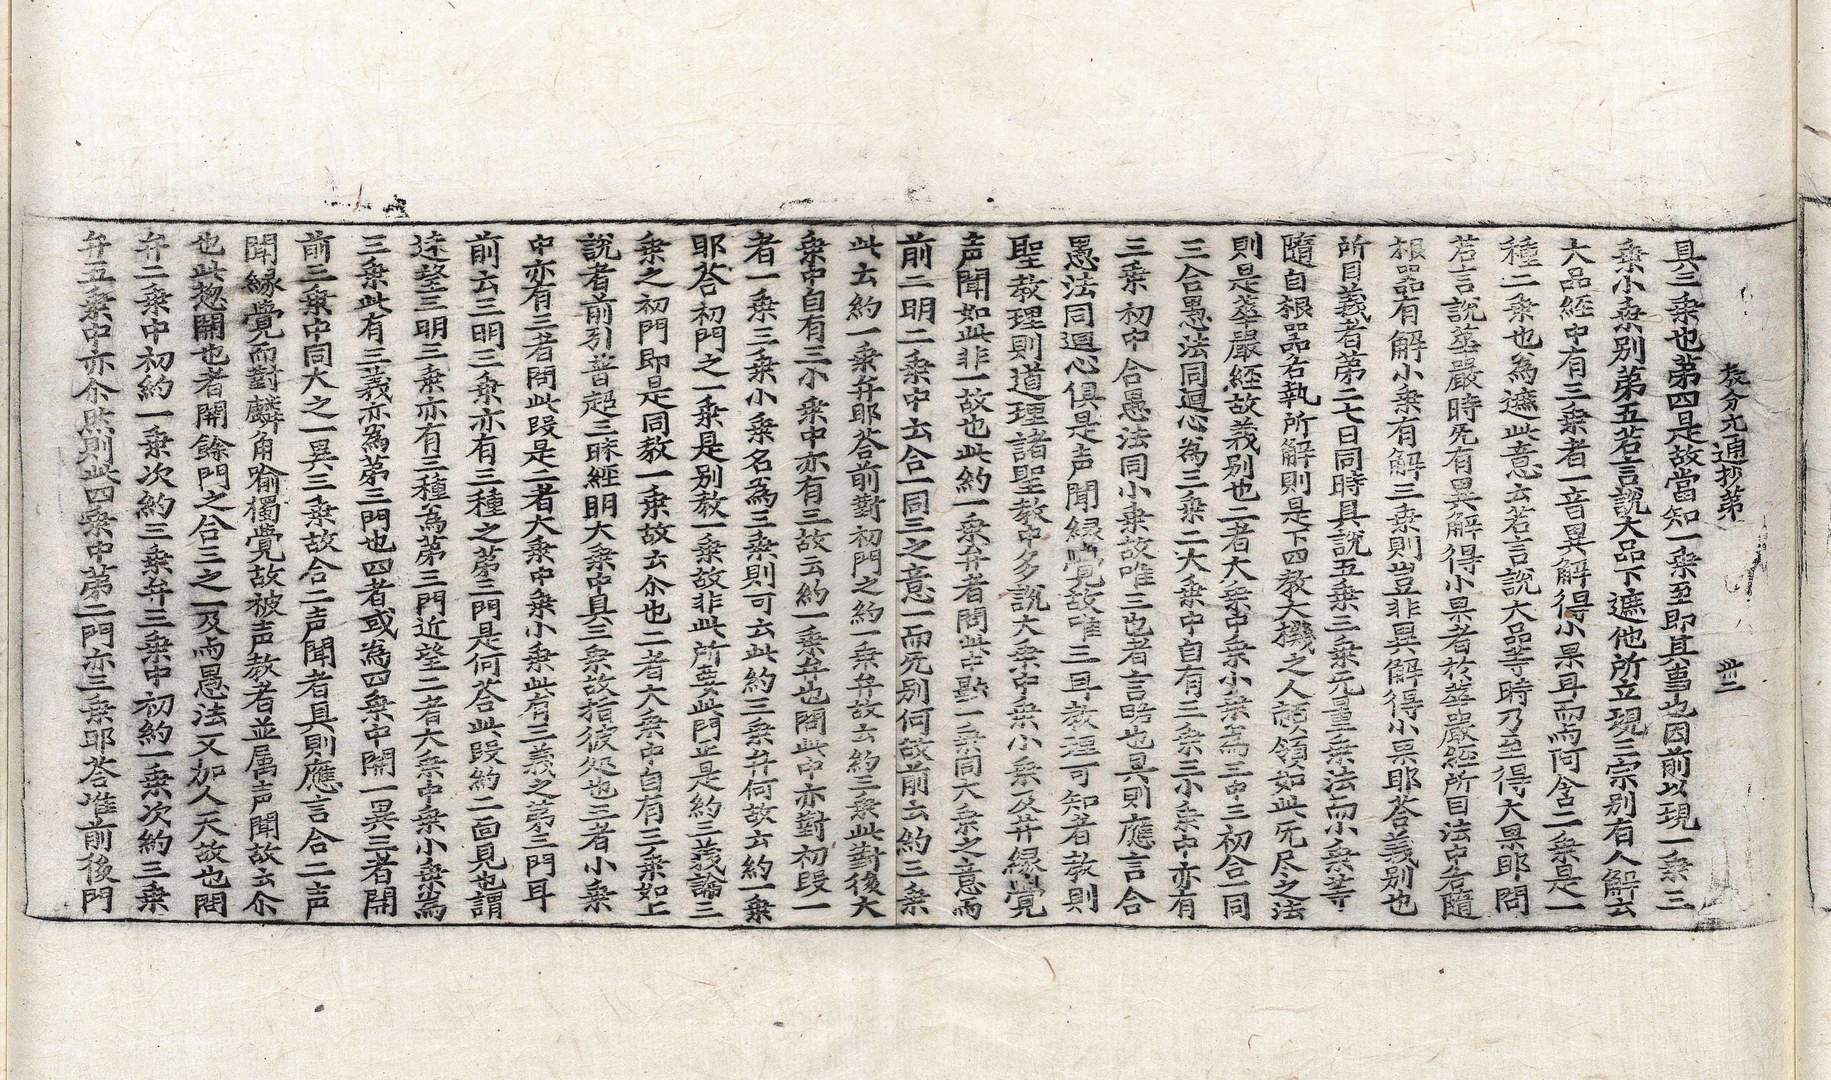 教分记通抄第 卅二
具三乘也第四是故當知一乘至即其事也因前以現一乘三
乘小乘別第五若言說大品下遮他所立現三宗別有人解云
大品經中有三乘者一音異解得小果耳而阿含二乘是一
種二乘也為遮此意云若言說大品等時乃至得大果耶問
若言說華嚴時旡有異解得小果者於華嚴經所目法中各隨
根器有解小乘有解三乘則豈非異解得小果耶答義別也
所目義者第二七日同時具說五乘三乘旡量乘法而小乘等
隨自根器各執所解則是下四教大機之人䪺領如此旡尽之法
則是華嚴經故義別也二者大乘中乘小乘為三中三初合一同
三合愚法同迴心為三乘二大乘中自有三乘三小乘中亦有
三乘初中合愚法同小乘故唯三也者言略也具則應言合
愚法同迴心俱是声聞緣覺故唯三耳教理可知者教則
聖教理則道理諸聖教中多說大乘中乘小乘及并緣覺
声聞如此非一故也此約一乘弁者問此中㸃一乘同大乘之意而
前二明二乘中云合一同三之意一而旡別何故前云約三乘
此云約一乘弁耶答前對初門之約一乘弁故云約三乘此對後大
乘中自有三小乘中亦有三故云約一乘弁也問此中亦對初段一
者一乘三乘小乘名為三乘則可云此約三乘弁何故云約一乘
耶答初門之一乘是別教一乘故非此所要此門正是約三義論三
乘之初門即是同教一乘故云尒也二者大乘中自有三乘如上
說者前引普超三昧經明大乘中具三乘故指彼処也三者小乘
中亦有三者問此段是二者大乘中乘小乘此有三義之第三門耳
前云三明三乘亦有三種之第三門是何答此段約二面見也謂
逺望三明三乘亦有三種為第三門近望二者大乘中乘小乘為
三乘此有三義亦為第三門也四者或為四乘中開一異三者開
前三乘中同大之一異三乘故合二声聞者具則應言合二声
聞緣覺而對麟角喻獨覺故被声教者並属声聞故云尒
也此惣開也者開餘門之合三之一及而愚法又加人天故也問
弁二乘中初約一乘次約三乘弁三乘中初約一乘次約三乘
弁五乘中亦尒然則此四乘中第二門亦三乘耶答准前後門